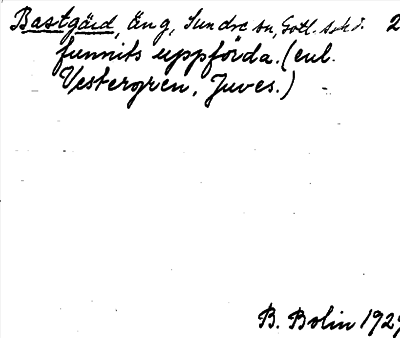 Bastgärd, äng, Sundre sn, Gotl. 2
funnits uppförda. (enl.
Vestergren, Juves.)
B. Bolin 1929